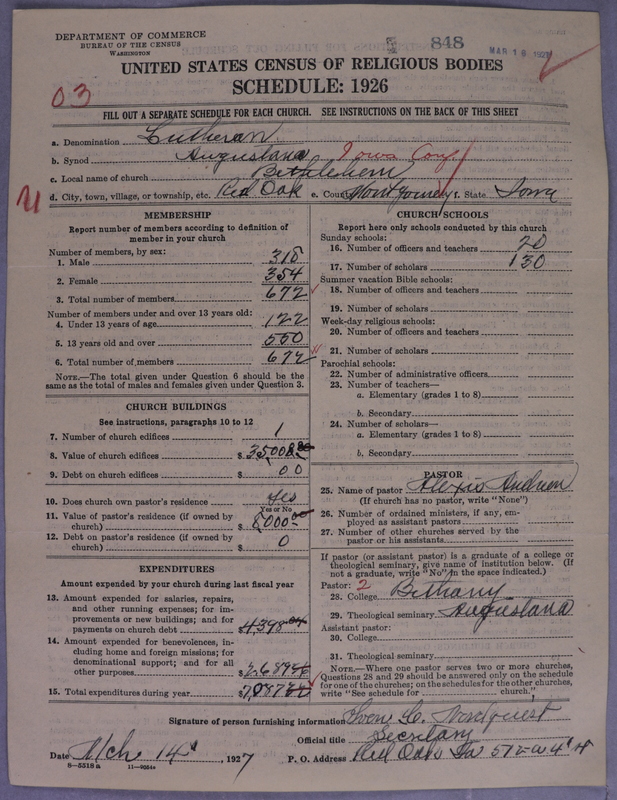 DEPARTMENT OF COMMERCE
BUREAU OF THE CENSUS
WASHINGTON
848
MAR 18 1927
UNITED STATES CENSUS OF RELIGIOUS BODIES
SCHEDULE: 1926
03
FILL OUT A SEPARATE SCHEDULE FOR EACH CHURCH. SEE INSTRUCTIONS ON THE BACK OF THIS SHEET
a. Denomination Lutheran
b. Synod Augustana Iowa Conf.
c. Local name of church Bethlehem
d. City, town, village, or township, etc. Red Oak e. County Montgomery f. State Iowa
MEMBERSHIP
Report number of members according to definition of
member in your church
Number of members, by sex:
1. Male 318
2. Female 354
3. Total number of members 672
Number of members under and over 13 years old:
4. Under 13 years of age 122
5. 13 years old and over 550
6. Total number of members 672
NOTE.—The total given under Question 6 should be the
same as the total of males and females given under Question 3.
CHURCH BUILDINGS
See instructions, paragraphs 10 to 12
7. Number of church edifices 1
8. Value of church edifices $ 35000
9. Debt on church edifices $ 00
10. Does church own pastor's residence yes
Yes or No
11. Value of pastor's residence (if owned by
church) $ 8000.00
12. Debt on pastor's residence (if owned by
church) $ 0
EXPENDITURES
Amount expended by your church during last fiscal year
13. Amount expended for salaries, repairs,
and other running expenses; for im-
provements or new buildings; and for
payments on church debt 4398
14. Amount expended for benevolences, in-
cluding home and foreign missions; for
denominational support; and for all
other purposes $ 2689
15. Total expenditures during year $ 7087
CHURCH SCHOOLS
Report here only schools conducted by this church
Sunday schools:
16. Number of officers and teachers 20
17. Number of scholars 130
Summer vacation Bible schools:
18. Number of officers and teachers
19. Number of scholars
Week-day religious schools:
20. Number of officers and teachers
21. Number of scholars
Parochial schools:
22. Number of administrative officers
23. Number of teachers—
a. Elementary (grades 1 to 8)
b. Secondary
24. Number of scholars—
a. Elementary (grades 1 to 8)
b. Secondary
PASTOR
25. Name of pastor Alexis Andreen
(If church has no pastor, write "None")
26. Number of ordained ministers, if any, em-
ployed as assistant pastors
27. Number of other churches served by the
pastor or his assistants
If pastor (or assistant pastor) is a graduate of a college or
theological seminary, give name of institution below. (If
not a graduate, write "No" in the space indicated.)
Pastor: 2
28. College Bethany
29. Theological seminary Augustana
Assistant pastor:
30. College
31. Theological seminary
NOTE.—Where one pastor serves two or more churches,
Questions 28 and 29 should be answered only on the schedule
for one of the churches; on the schedules for the other churches,
write "See schedule for church."
Signature of person furnishing information Sven G. Nordquist
Official title Secretary
Date Mch 14, 1927 P. O. Address Red Oak Ia
8—5518a 11—9054a